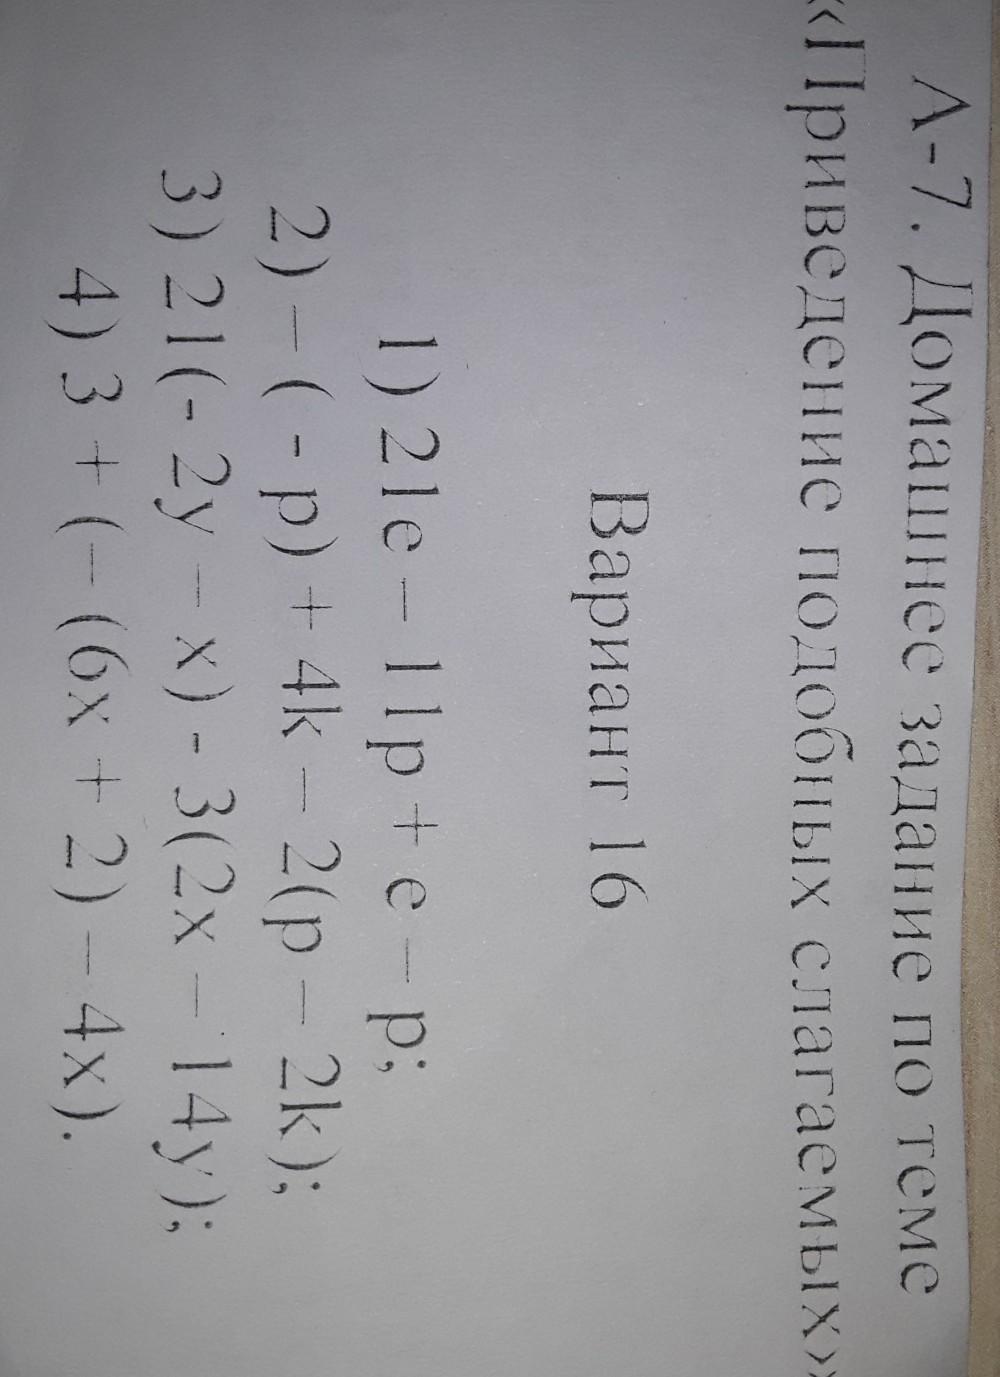 А-7. Домашнее задание по теме
«Приведение подобных слагаемых»
Вариант 16
1) 21e – 11p + e – p;
2) – ( - p) + 4k – 2(p – 2k);
3) 21(- 2y – x) - 3(2x – 14y);
4) 3 + (– (6x + 2) – 4x).